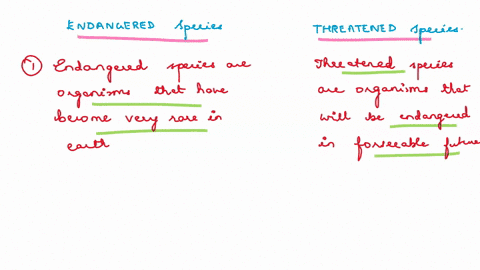 ENDANGERED Species
① Endangered species are
organisms that have
become very rare in
earth
THREATENED Species.
Threatened species
are organisms that
will be endangered
in foreseeable future